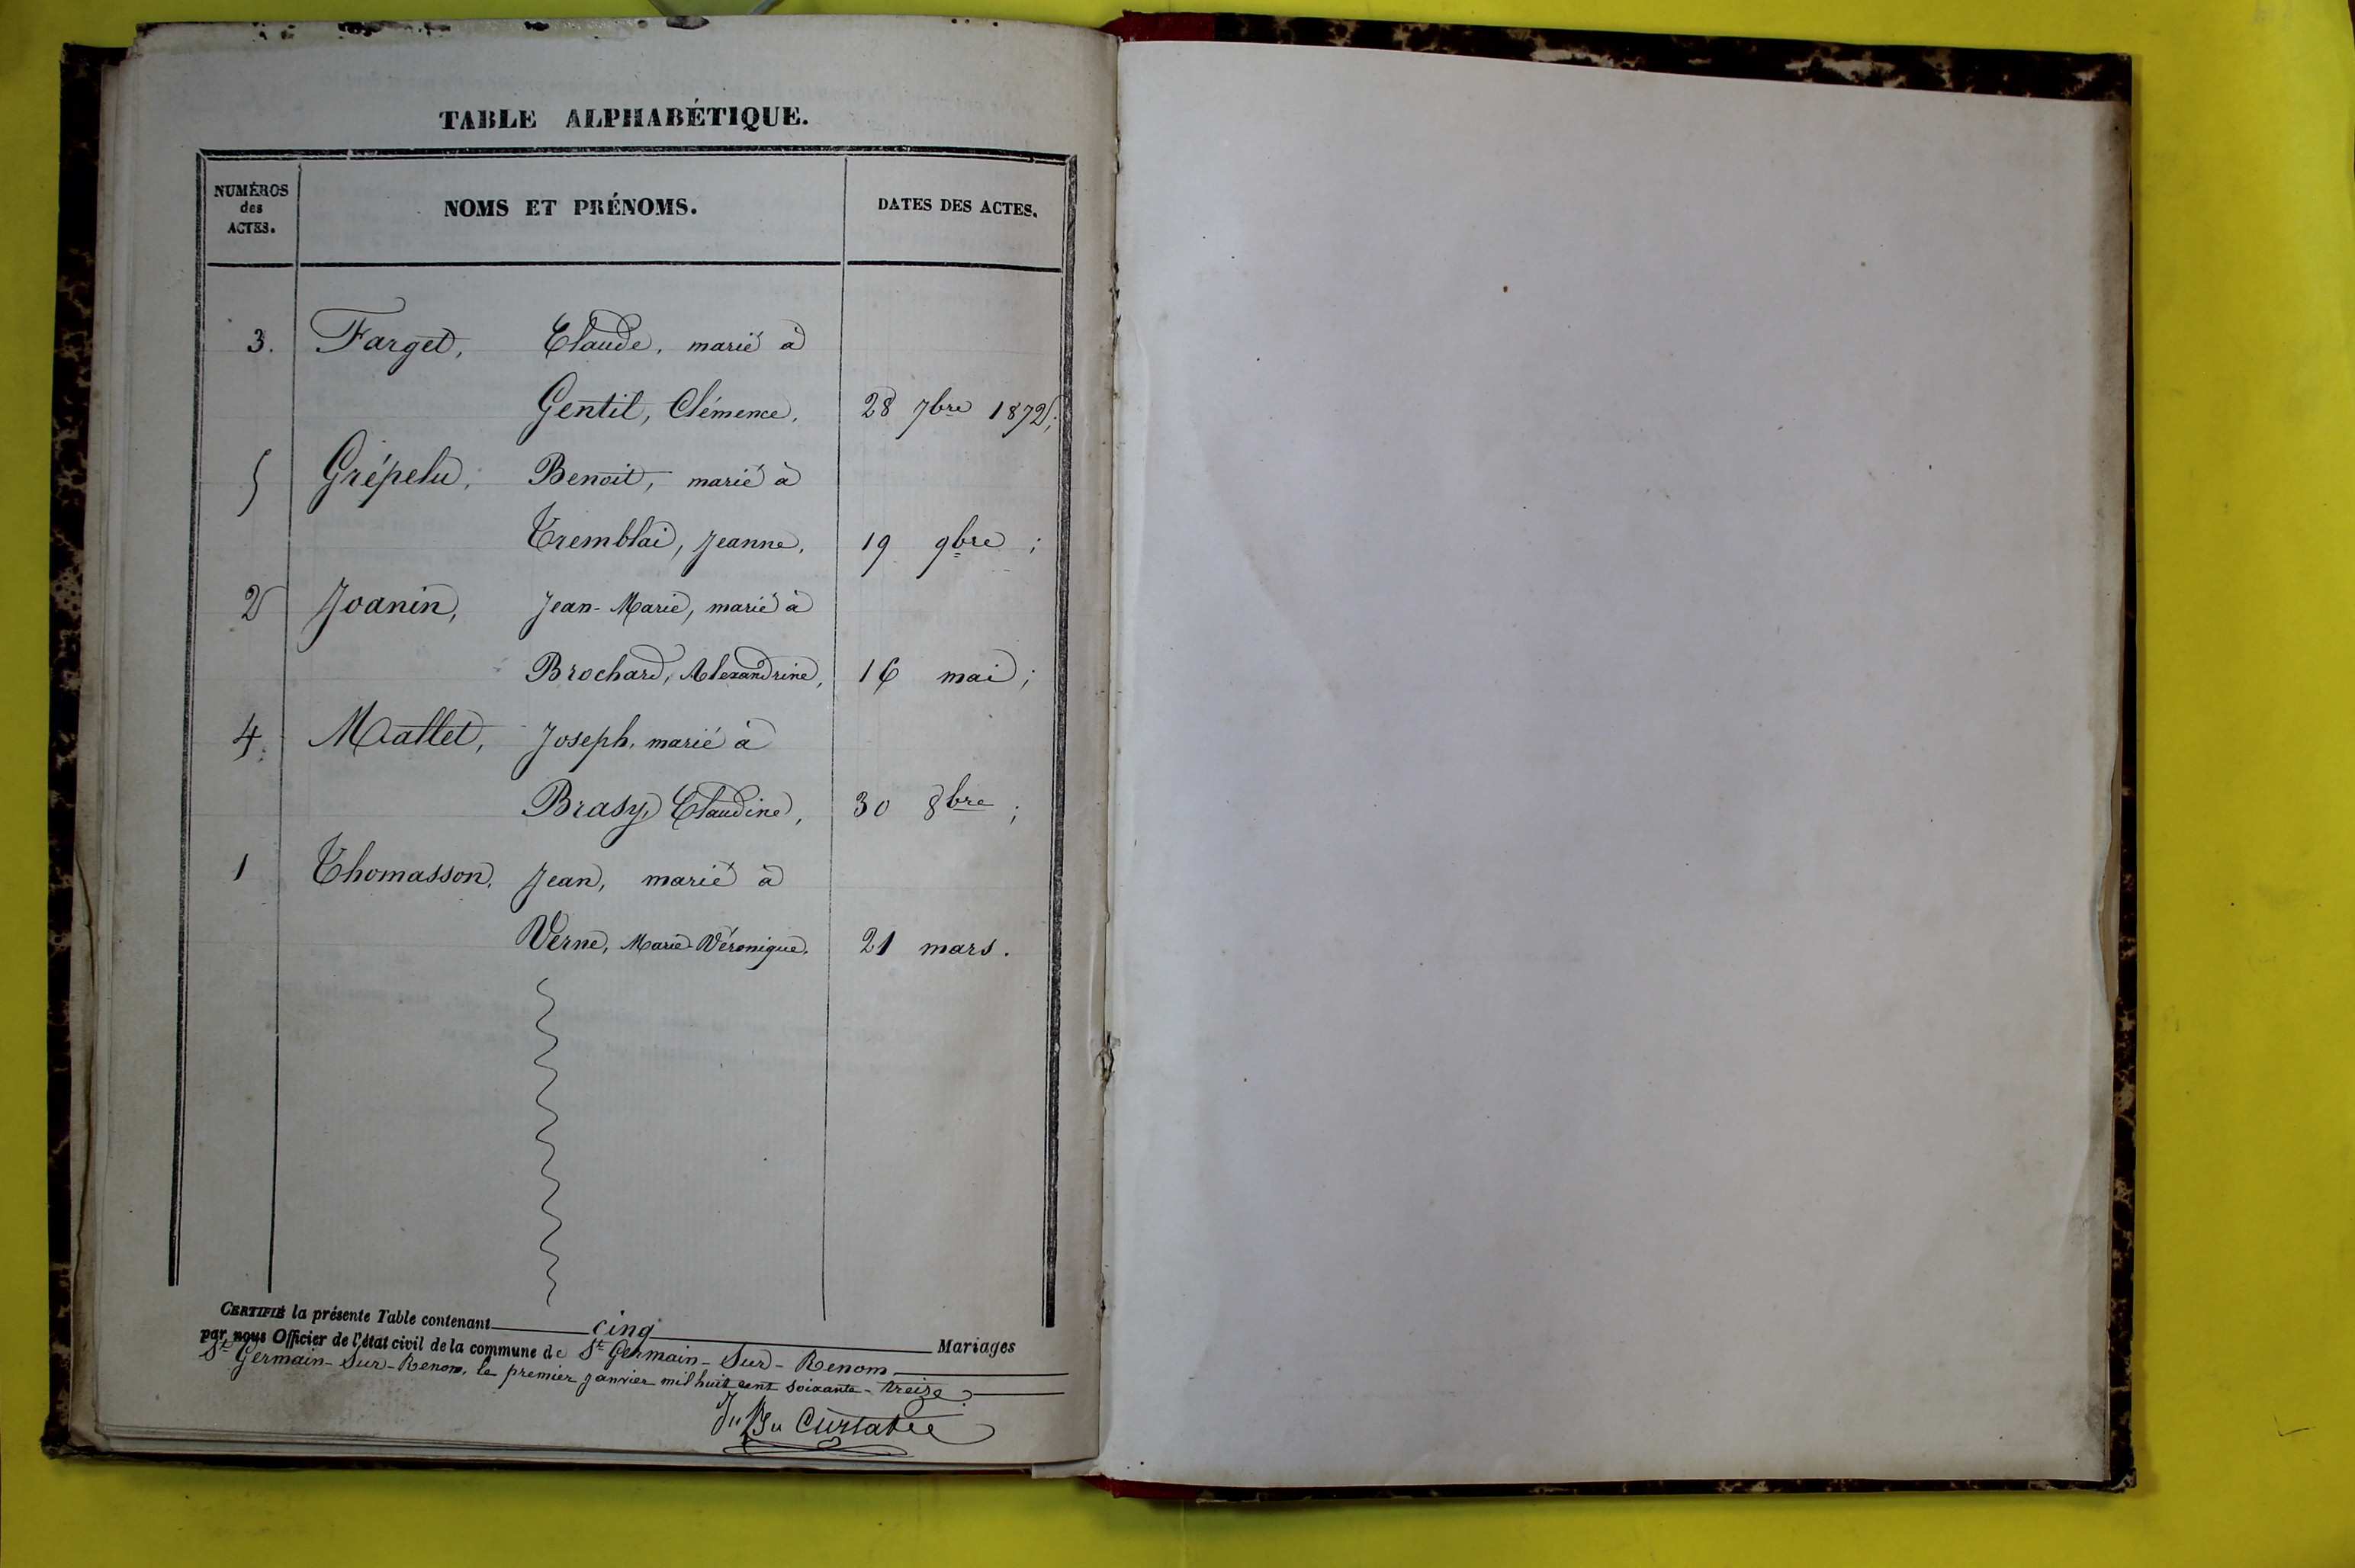 TABLE ALPHABÉTIQUE.
NUMÉROS
des
ACTES.
NOMS ET PRÉNOMS.
DATES DES ACTES.
3. Farget, Claude, marié à
Gentil, Clémence, 28 7bre 1872;
5 Grépelu, Benoit, marié à
Tremblai, Jeanne, 19 9bre ;
2 Joanin, Jean-Marie, marié à
Brochard, Alexandrine, 16 mai ;
4. Mallet, Joseph, marié à
Brasy, Claudine, 30 8bre ;
1 Thomasson, Jean, marié à
Verne, Marie-Véronique. 21 mars.
CERTIFIÉ la présente Table contenant cinq Mariages
par nous Officier de l'état civil de la commune de St Germain-Sur-Renom
St Germain-Sur-Renom, le premier janvier mil huit cent soixante-treize.